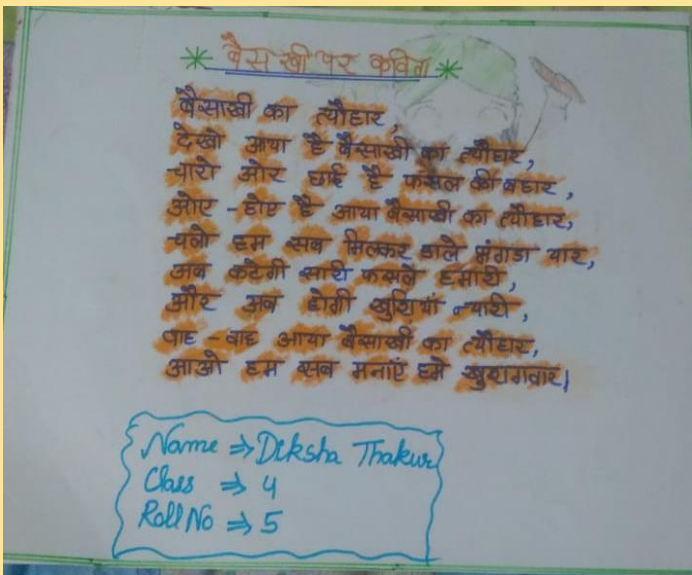 * बैसाखी पर कविता *
बैसाखी का त्यौहार,
देखो आया है बैसाखी का त्यौहार,
चारो ओर छाई है फसल की बहार,
ओए - होए है आया बैसाखी का त्यौहार,
चलो हम सब मिलकर डाले भंगडा यार,
अब कटेगी सारी फसले हमारी,
और अब होगी खुशियां न्यारी,
वाह - वाह आया बैसाखी का त्यौहार,
आओ हम सब मनाएं इसे खुशगवार।
Name ⇒ Diksha Thakur
Class ⇒ 4
Roll No ⇒ 5